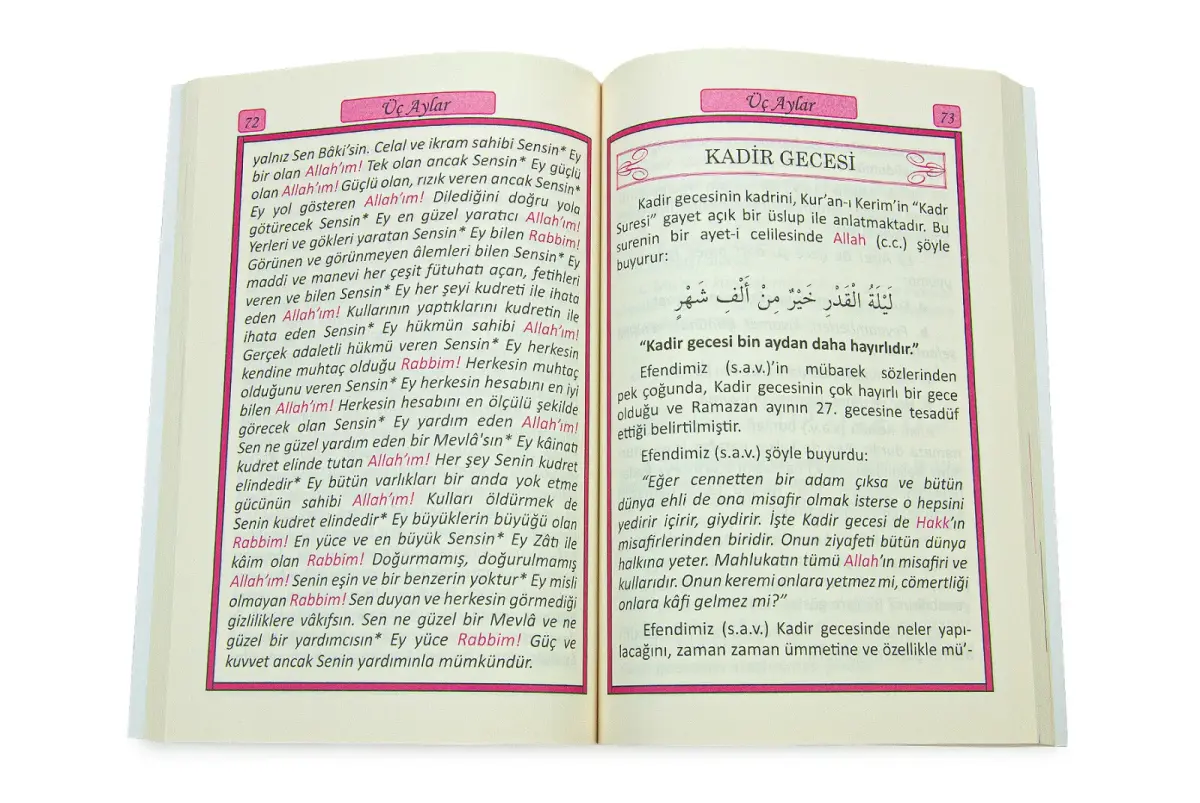 72
Üç Aylar
yalnız Sen Bâki’sin. Celal ve ikram sahibi Sensin* Ey
bir olan Allah’ım! Tek olan ancak Sensin* Ey güçlü
olan Allah’ım! Güçlü olan, rızık veren ancak Sensin*
Ey yol gösteren Allah’ım! Dilediğini doğru yola
götürecek Sensin* Ey en güzel yaratıcı Allah’ım!
Yerleri ve gökleri yaratan Sensin* Ey bilen Rabbim!
Görünen ve görünmeyen âlemleri bilen Sensin* Ey
maddi ve manevi her çeşit fütuhatı açan, fetihleri
veren ve bilen Sensin* Ey her şeyi kudreti ile ihata
eden Allah’ım! Kullarının yaptıklarını kudretin ile
ihata eden Sensin* Ey hükmün sahibi Allah’ım!
Gerçek adaletli hükmü veren Sensin* Ey herkesin
kendine muhtaç olduğu Rabbim! Herkesin muhtaç
olduğunu veren Sensin* Ey herkesin hesabını en iyi
bilen Allah’ım! Herkesin hesabını en ölçülü şekilde
görecek olan Sensin* Ey yardım eden Allah’ım!
Sen ne güzel yardım eden bir Mevlâ'sın* Ey kâinatı
kudret elinde tutan Allah’ım! Her şey Senin kudret
elindedir* Ey bütün varlıkları bir anda yok etme
gücünün sahibi Allah’ım! Kulları öldürmek de
Senin kudret elindedir* Ey büyüklerin büyüğü olan
Rabbim! En yüce ve en büyük Sensin* Ey Zâtı ile
kâim olan Rabbim! Doğurmamış, doğurulmamış
Allah’ım! Senin eşin ve bir benzerin yoktur* Ey misli
olmayan Rabbim! Sen duyan ve herkesin görmediği
gizliliklere vâkıfsın. Sen ne güzel bir Mevlâ ve ne
güzel bir yardımcısın* Ey yüce Rabbim! Güç ve
kuvvet ancak Senin yardımınla mümkündür.
Üç Aylar
73
KADİR GECESİ
Kadir gecesinin kadrini, Kur’an-ı Kerim’in “Kadr
Suresi” gayet açık bir üslup ile anlatmaktadır. Bu
surenin bir ayet-i celilesinde Allah (c.c.) şöyle
buyurur:
لَيْلَةُ الْقَدْرِ خَيْرٌ مِنْ أَلْفِ شَهْرٍ
“Kadir gecesi bin aydan daha hayırlıdır.”
Efendimiz (s.a.v.)’in mübarek sözlerinden
pek çoğunda, Kadir gecesinin çok hayırlı bir gece
olduğu ve Ramazan ayının 27. gecesine tesadüf
ettiği belirtilmiştir.
Efendimiz (s.a.v.) şöyle buyurdu:
“Eğer cennetten bir adam çıksa ve bütün
dünya ehli de ona misafir olmak isterse o hepsini
yedirir içirir, giydirir. İşte Kadir gecesi de Hakk’ın
misafirlerinden biridir. Onun ziyafeti bütün dünya
halkına yeter. Mahlukatın tümü Allah’ın misafiri ve
kullarıdır. Onun keremi onlara yetmez mi, cömertliği
onlara kâfi gelmez mi?”
Efendimiz (s.a.v.) Kadir gecesinde neler yapı-
lacağını, zaman zaman ümmetine ve özellikle mü’-